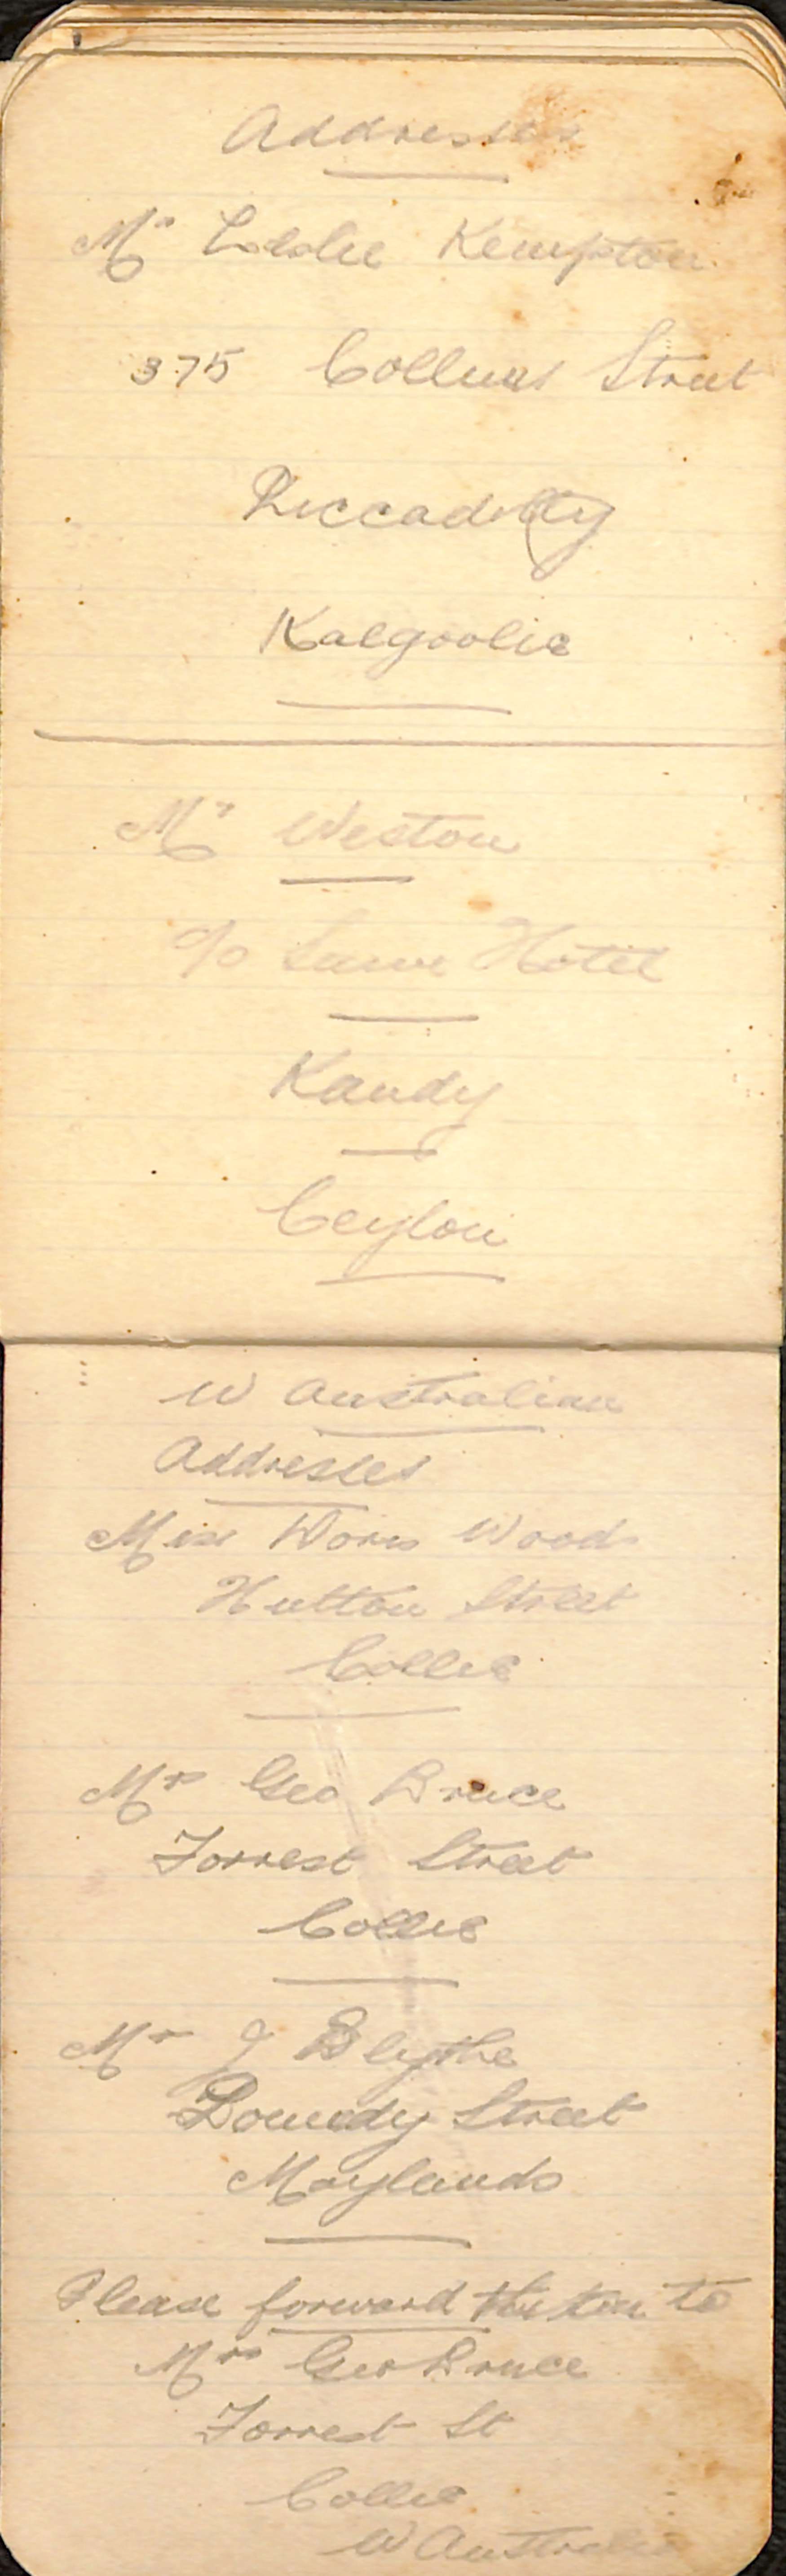 Addresses
Mr Leslie Kempton
375 Collins Street
Piccadilly
Kalgoolie
Mr Weston
c/o Hotel
Kandy
Ceylon
W Australian
Addresses
Miss Doris Wood
Hutton Street
Collie
Mrs Geo Bruce
Forrest Street
Collie
Mr J Blythe
Street
Maylands
Please forward to
Mrs Geo Bruce
Forrest St
Collie
W Australia